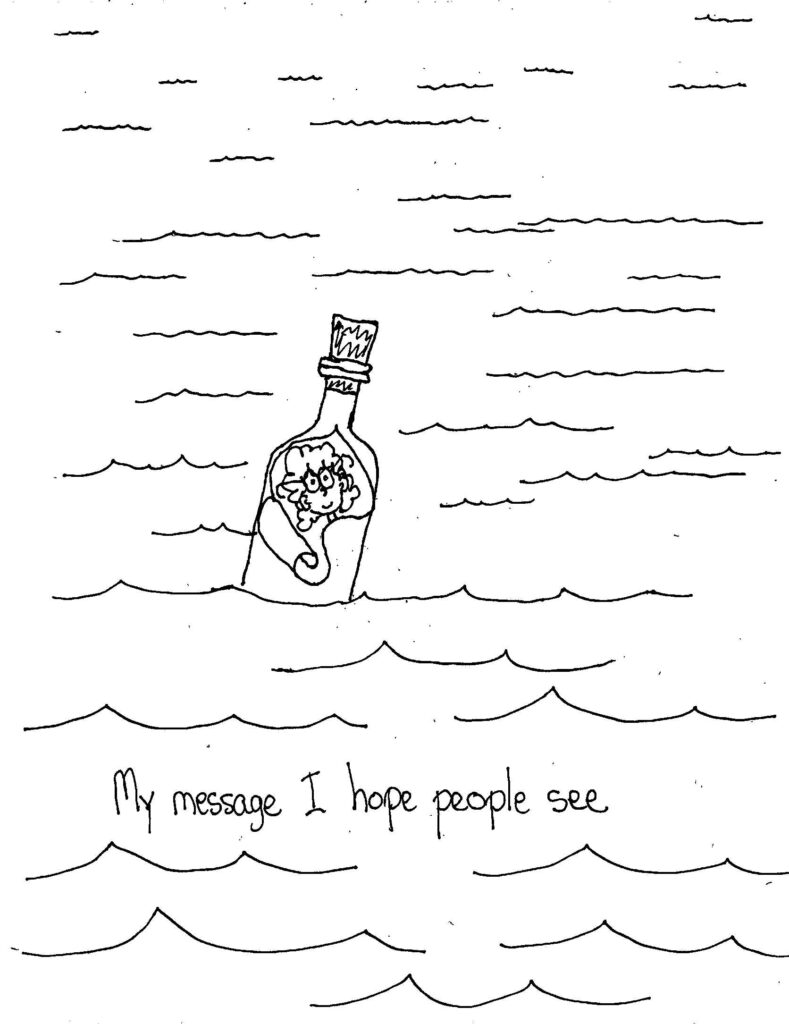 My message I hope people see